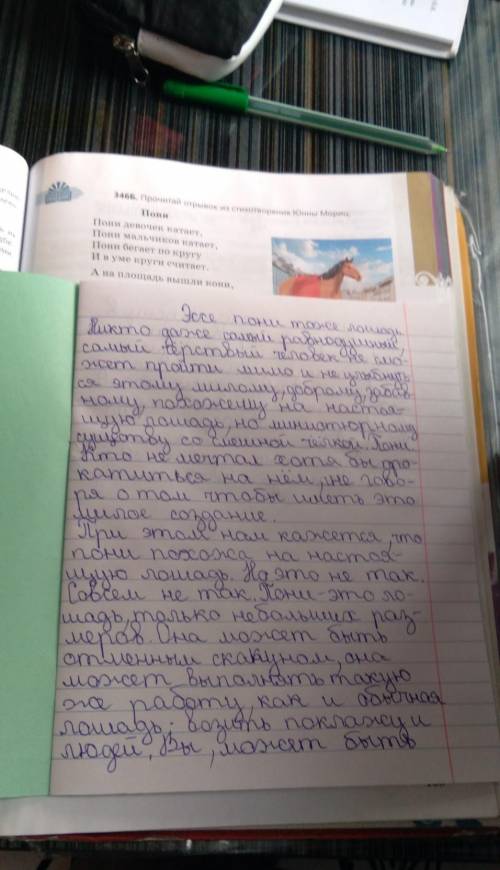 346Б. Прочитай отрывок из стихотворения Юнны Мориц.
Пони
Пони девочек катает,
Пони мальчиков катает,
Пони бегает по кругу
И в уме круги считает.
А на площадь вышли кони,
Эссе пони тоже лошадь
Никто даже самый равнодушный,
самый чёрствый человек не смо-
жет пройти мимо и не улыбнуть
ся этому милому, доброму, забав
ному, похожему на настоя-
щую лошадь, но миниатюрному
существу со смешной чёлкой. Пони.
Кто не мечтал хотя бы про
катиться на нём, не гово-
ря о том чтобы иметь это
милое создание.
При этом нам кажется, что
пони похожа на настоя-
щую лошадь. Но это не так.
Совсем не так. Пони-это ло-
шадь, только небольших раз-
меров. Она может быть
отменным скакуном, она
может выполнять такую
же работу, как и обычная
лошадь: возить поклажу и
людей, Вы, может быть